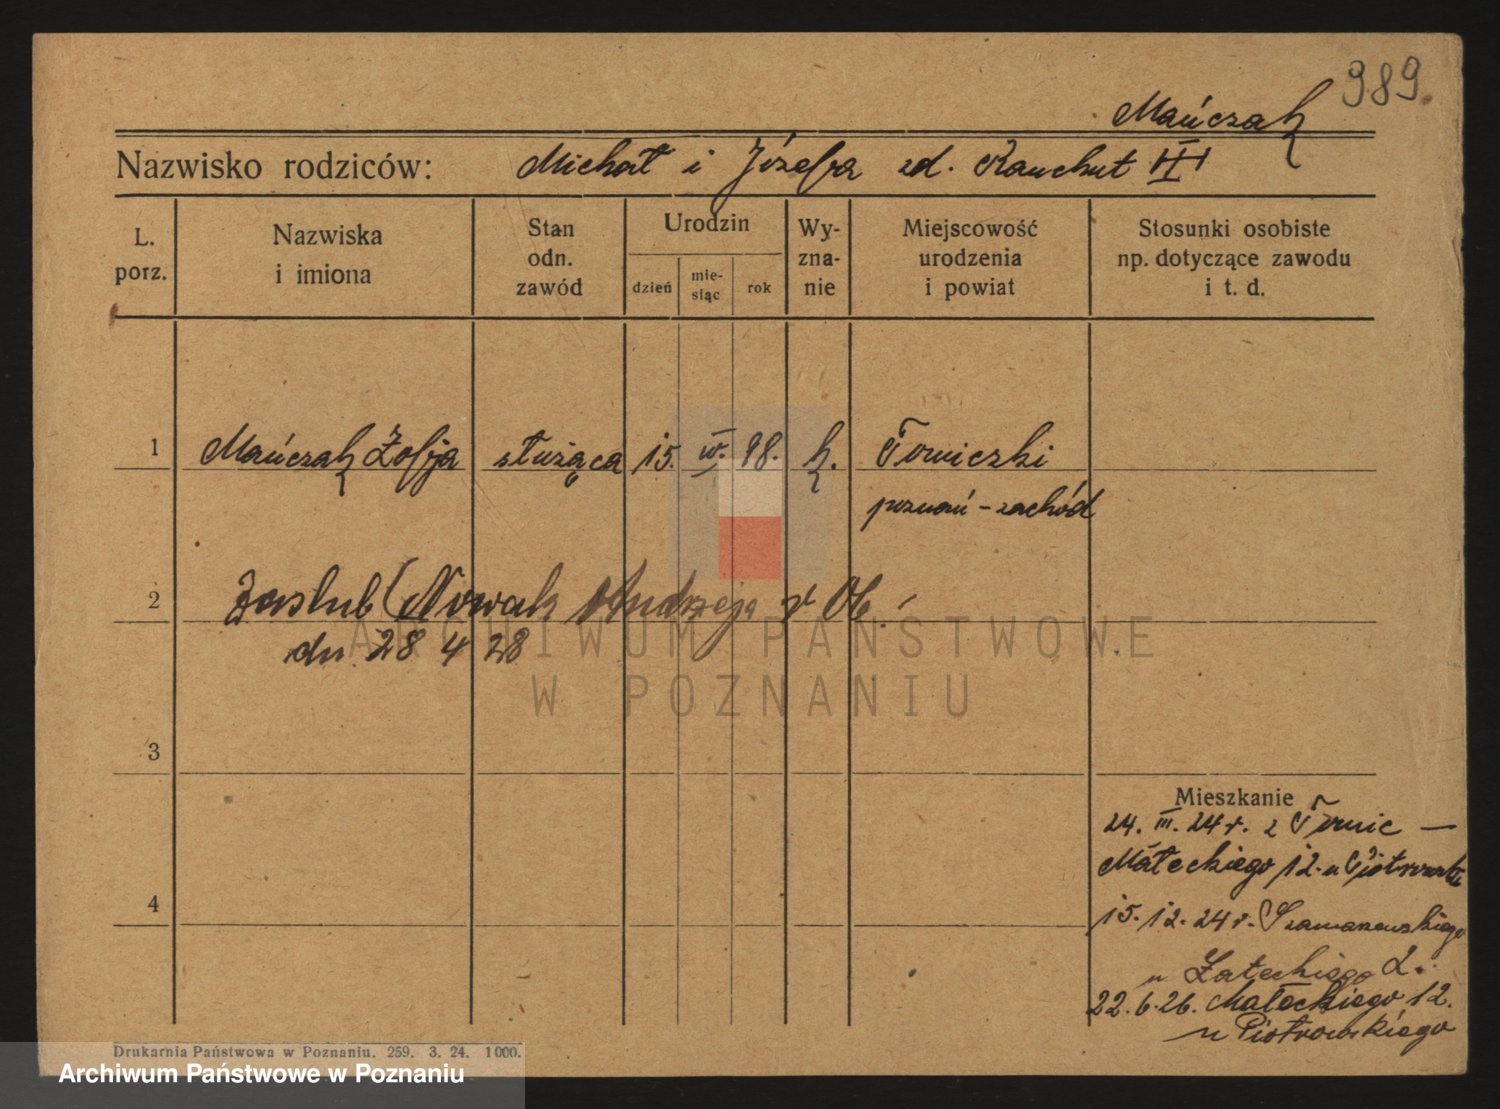 989
Mańczak
Nazwisko rodziców: Michał i Józefa zd. Kauchut III
L. porz.
Nazwiska i imiona
Stan odn. zawód
Urodzin
dzień
mie-siąc
rok
Wy-zna-nie
Miejscowość urodzenia i powiat
Stosunki osobiste np. dotyczące zawodu i t. d.
1 Mańczak Zofja służąca 15. IV. 98. k. Tomiczki
poznań - zachód
2 Zaślub Nowak Andrzeja
dn 28 4 28
ARCHIWUM PAŃSTWOWE
W POZNANIU
3
Mieszkanie
24. III. 24 r. z Tomic —
Małeckiego 12. u
4
15. 12. 24 r. Szamarzewskiego
u Załeckiego 2.
22. 6. 26. Małeckiego 12.
u Piotrowskiego
Drukarnia Państwowa w Poznaniu. 259. 3. 24. 1000.
Archiwum Państwowe w Poznaniu